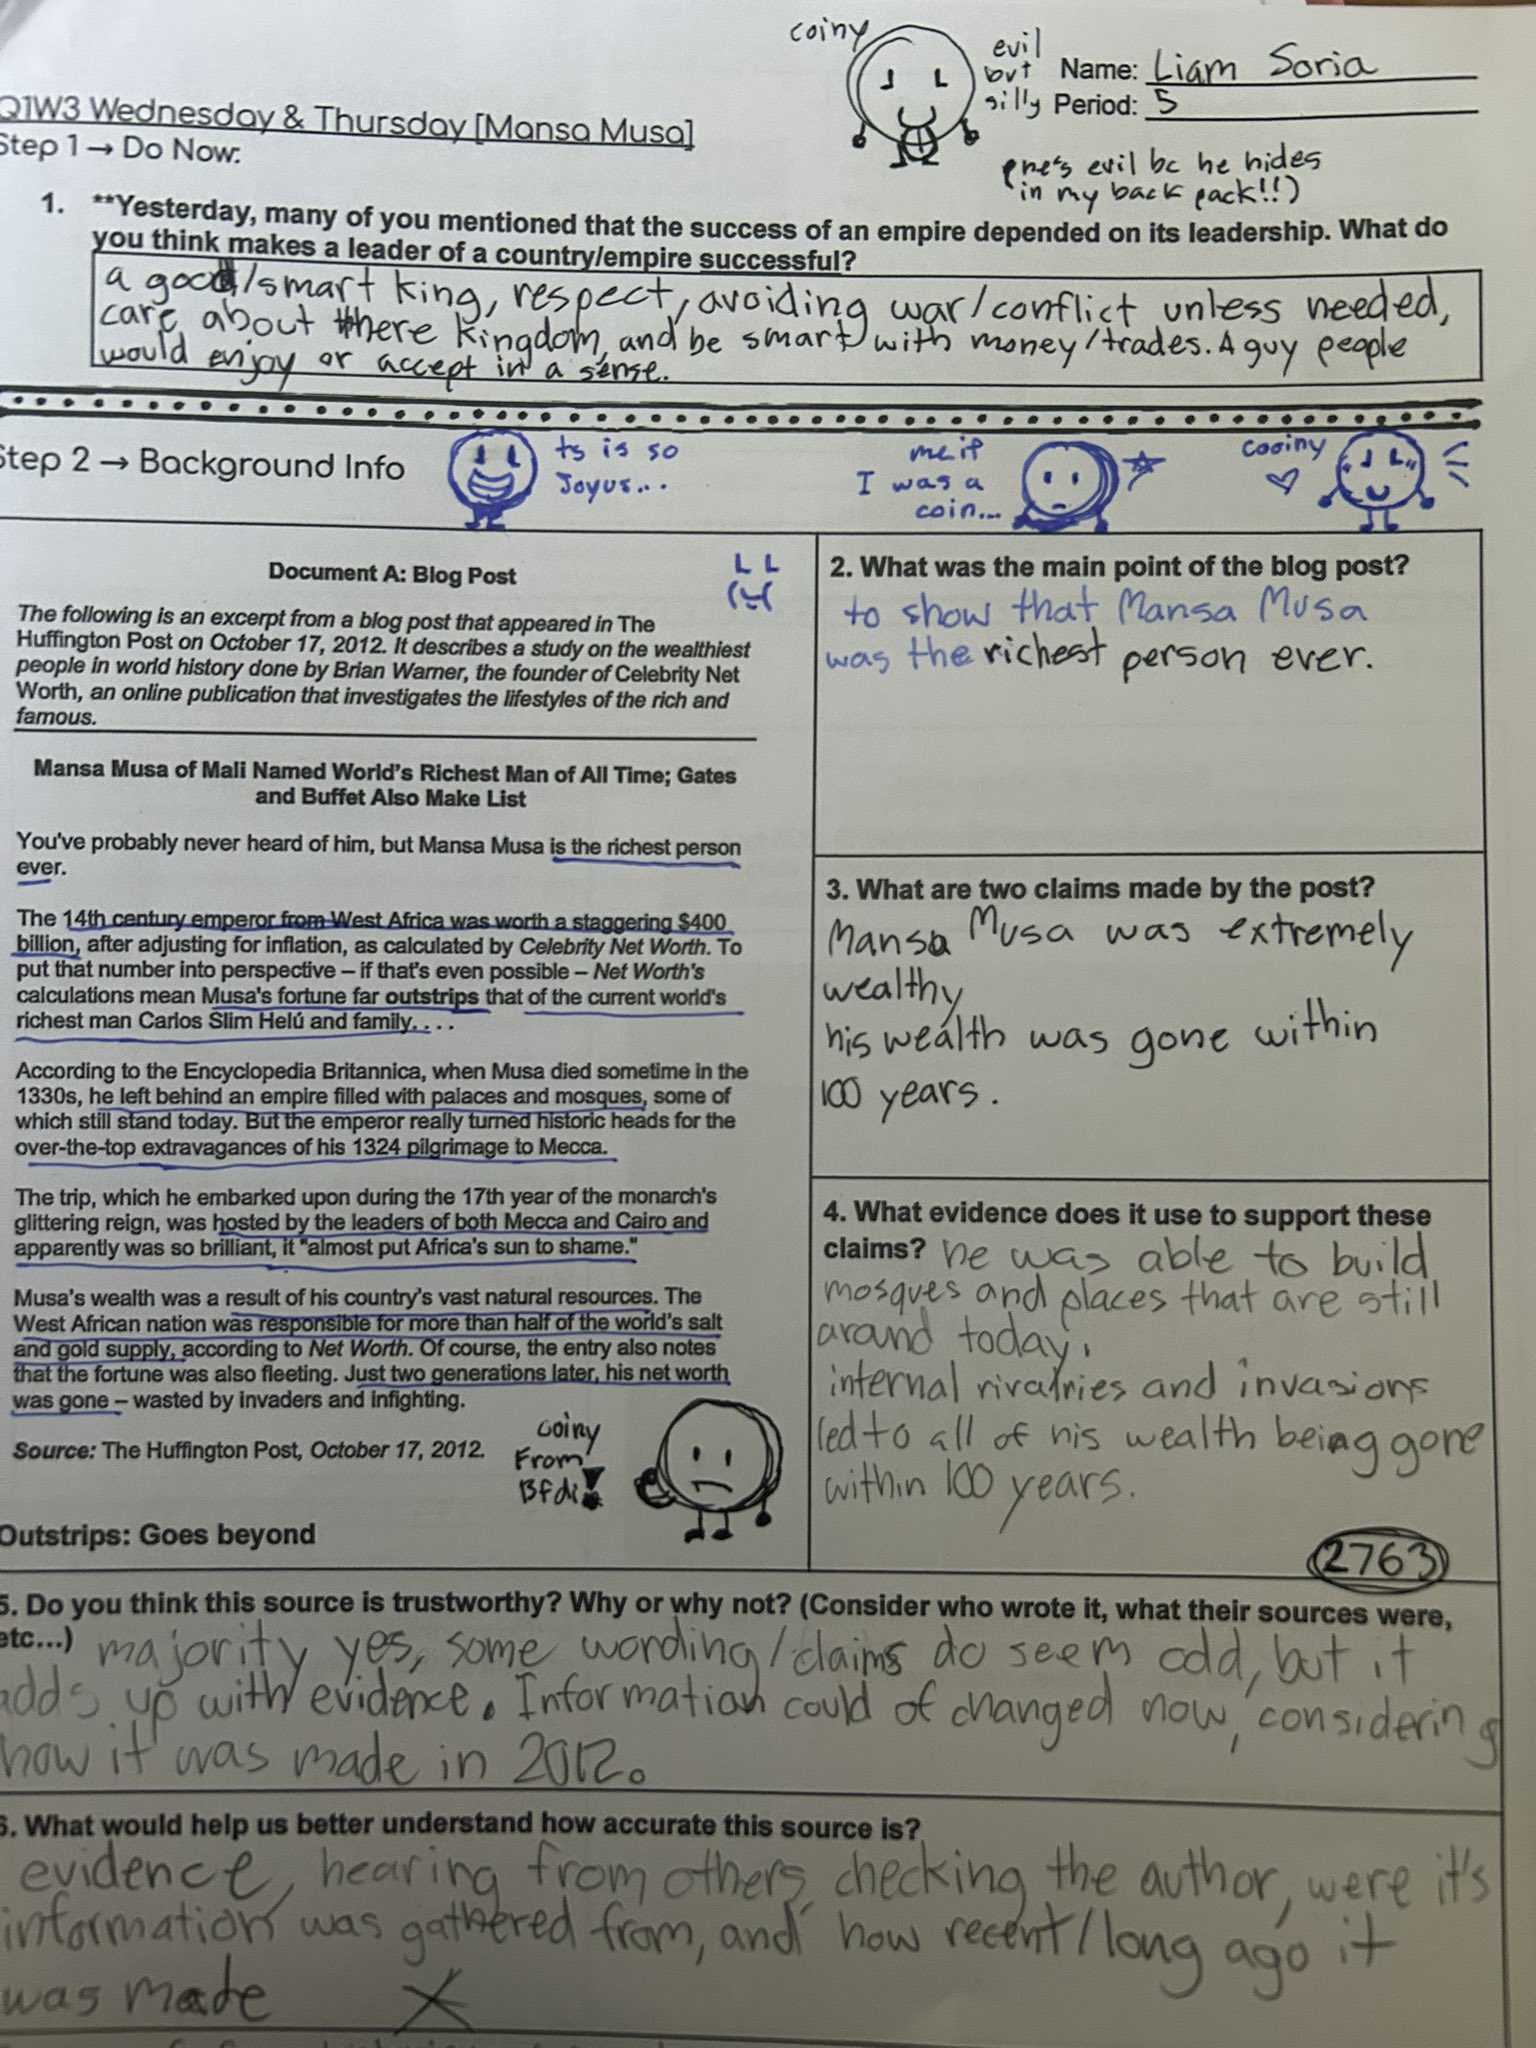 coiny
evil
but
silly
Name: Liam Soria
Period: 5
(he's evil bc he hides
in my back pack!!)
Q1W3 Wednesday & Thursday [Mansa Musa]
Step 1 → Do Now:
1. **Yesterday, many of you mentioned that the success of an empire depended on its leadership. What do
you think makes a leader of a country/empire successful?
a good/smart king, respect, avoiding war/conflict unless needed,
care about there kingdom, and be smart with money/trades. A guy people
would enjoy or accept in a sense.
Step 2 → Background Info
ts is so
Joyus...
me if
I was a
coin...
cooiny
Document A: Blog Post
The following is an excerpt from a blog post that appeared in The
Huffington Post on October 17, 2012. It describes a study on the wealthiest
people in world history done by Brian Warner, the founder of Celebrity Net
Worth, an online publication that investigates the lifestyles of the rich and
famous.
Mansa Musa of Mali Named World's Richest Man of All Time; Gates
and Buffet Also Make List
You've probably never heard of him, but Mansa Musa is the richest person
ever.
The 14th century emperor from West Africa was worth a staggering $400
billion, after adjusting for inflation, as calculated by Celebrity Net Worth. To
put that number into perspective – if that's even possible – Net Worth's
calculations mean Musa's fortune far outstrips that of the current world's
richest man Carlos Slim Helú and family. . . .
According to the Encyclopedia Britannica, when Musa died sometime in the
1330s, he left behind an empire filled with palaces and mosques, some of
which still stand today. But the emperor really turned historic heads for the
over-the-top extravagances of his 1324 pilgrimage to Mecca.
The trip, which he embarked upon during the 17th year of the monarch's
glittering reign, was hosted by the leaders of both Mecca and Cairo and
apparently was so brilliant, it "almost put Africa's sun to shame."
Musa's wealth was a result of his country's vast natural resources. The
West African nation was responsible for more than half of the world's salt
and gold supply, according to Net Worth. Of course, the entry also notes
that the fortune was also fleeting. Just two generations later, his net worth
was gone – wasted by invaders and infighting.
Source: The Huffington Post, October 17, 2012.
coiny
From
Bfdi!
Outstrips: Goes beyond
2. What was the main point of the blog post?
to show that Mansa Musa
was the richest person ever.
3. What are two claims made by the post?
Mansa Musa was extremely
wealthy
his wealth was gone within
100 years.
4. What evidence does it use to support these
claims? he was able to build
mosques and places that are still
around today.
internal rivalries and invasions
led to all of his wealth being gone
within 100 years.
2763
5. Do you think this source is trustworthy? Why or why not? (Consider who wrote it, what their sources were,
etc...) majority yes, some wording/claims do seem odd, but it
adds up with evidence. Information could of changed now, considering
how it was made in 2012.
6. What would help us better understand how accurate this source is?
evidence, hearing from others, checking the author, were it's
information was gathered from, and how recent/long ago it
was made